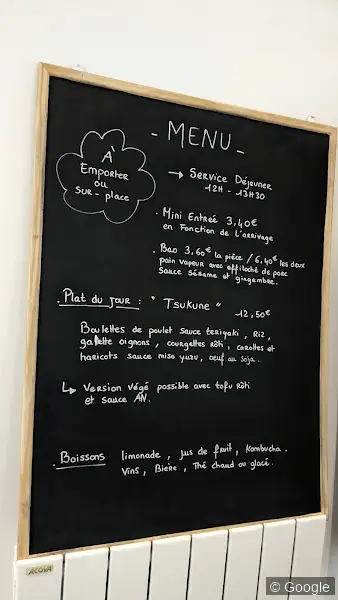 - MENU -
À
Emporter
ou
Sur - place
→ Service Déjeuner
12H - 13H30
. Mini Entrée 3,40€
en Fonction de l'arrivage
. Bao 3,60€ la pièce / 6,40€ les deux
pain vapeur avec effiloché de porc
sauce sésame et gingembre.
. Plat du jour : " Tsukune "
12,50€
Boulettes de poulet sauce teriyaki, Riz,
galette oignons, courgettes rôti, carottes et
haricots sauce miso yuzu, oeuf au soja.
↳ Version végé possible avec tofu rôti
et sauce AN.
. Boissons limonade, jus de fruit, Kombucha.
Vins, Bière, Thé chaud ou glacé.
ACOVA
© Google